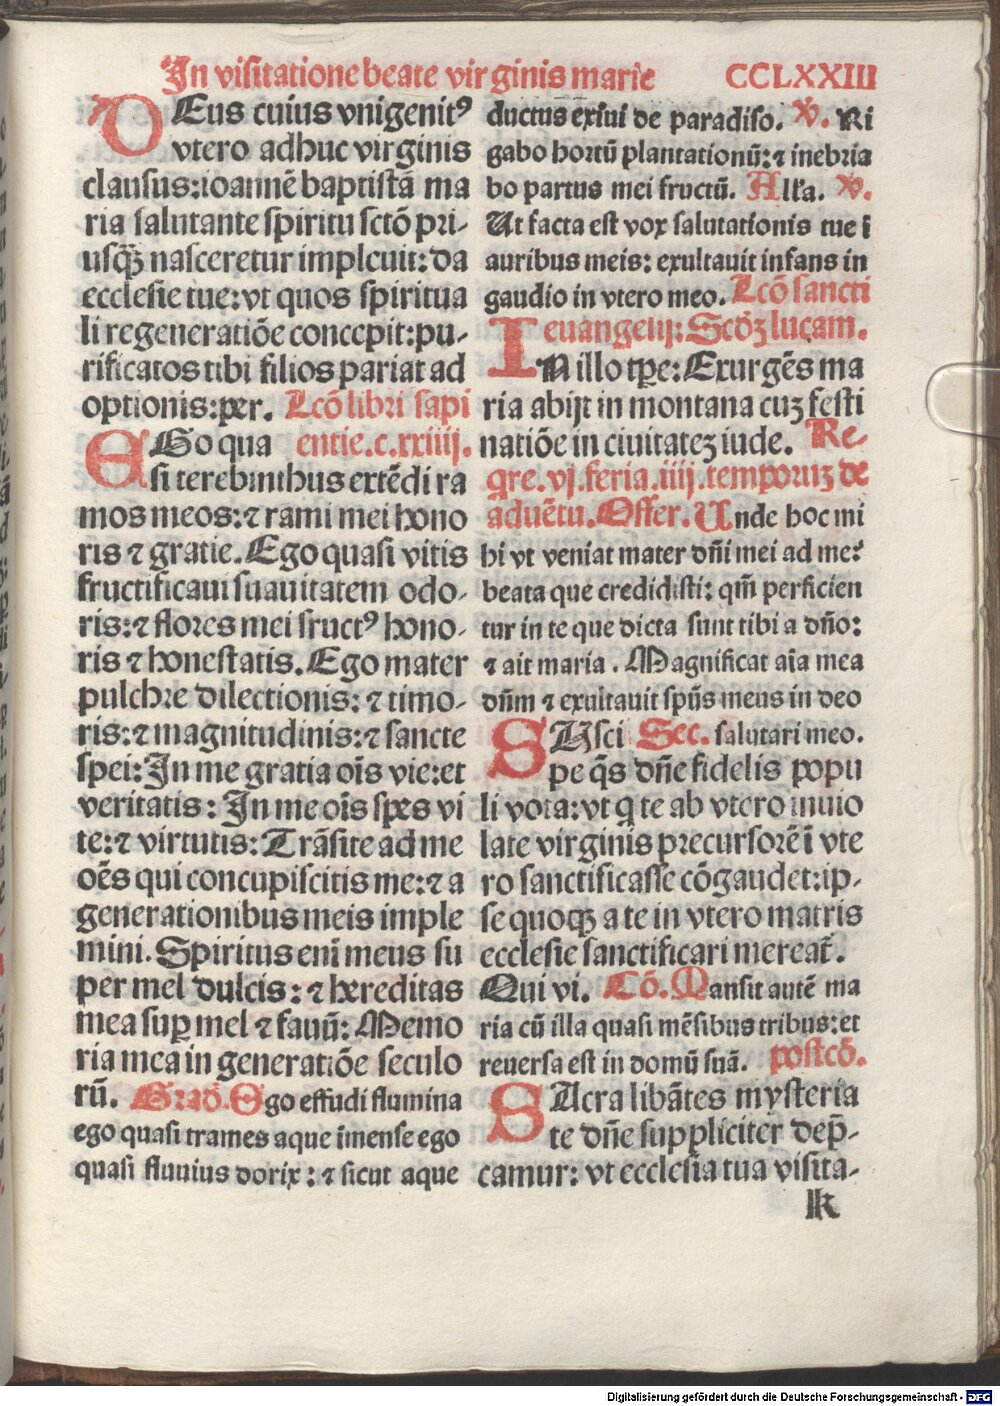 In visitatione beate virginis marie CCLXXIII
DEus cuius vnigenitꝰ
vtero adhuc virginis
clausus:ioannē baptistā ma
ria salutante spiritu sctō pri-
usq̄ꝫ nasceretur impleuit: da
ecclesie tue:vt quos spiritua
li regeneratiōe concepit:pu-
rificatos tibi filios pariat ad
optionis:per. Lcō libri sapi
EGo qua entie.c.xxiiij.
si terebinthus extēdi ra
mos meos:⁊ rami mei hono
ris ⁊ gratie. Ego quasi vitis
fructificaui suauitatem odo-
ris:⁊ flores mei fructꝰ hono-
ris ⁊ honestatis. Ego mater
pulchre dilectionis: ⁊ timo-
ris:⁊ magnitudinis:⁊ sancte
spei: In me gratia oīs vie:et
veritatis: In me oīs spes vi
te:⁊ virtutis: Trāsite ad me
oēs qui concupiscitis me:⁊ a
generationibus meis imple
mini. Spiritus enī meus su
per mel dulcis: ⁊ hereditas
mea suꝑ mel ⁊ fauū: Memo
ria mea in generatiōe seculo
rū. Grad̄. Ego effudi flumina
ego quasi trames aque īmense ego
quasi fluuius dorix: ⁊ sicut aque
ductus exiui de paradiso. v̄. Ri
gabo hortū plantationū:⁊ inebria
bo partus mei fructū. Alľa. v̄.
Ut facta est vox salutationis tue ī
auribus meis: exultauit infans in
gaudio in vtero meo. Lcō sancti
euangelij: Scd̄ꝫ lucam.
IN illo tꝑe: Exurgēs ma
ria abijt in montana cuꝫ festi
natiōe in ciuitateꝫ iude. Re-
qre. vj. feria. iiij. temporuꝫ de
aduētu. Offer. Unde hoc mi
hi vt veniat mater dn̄i mei ad me?
beata que credidisti: qm̄ perficien
tur in te que dicta sunt tibi a dn̄o:
⁊ ait maria. Magnificat aīa mea
dn̄m ⁊ exultauit sp̄ūs meus in deo
SUsci Sec. salutari meo.
pe q̄s dn̄e fidelis popu
li vota:vt q te ab vtero inuio
late virginis precursorē ī vte
ro sanctificasse cōgaudet:ip-
se quoqꝫ a te in vtero matris
ecclesie sanctificari mereat̄.
Qui vi. Cō. Mansit autē ma
ria cū illa quasi mēsibus tribus:et
reuersa est in domū suā. postcō.
SAcra libātes mysteria
te dn̄e suppliciter dep̄-
camur: vt ecclesia tua visita-
lk
Digitalisierung gefördert durch die Deutsche Forschungsgemeinschaft - DFG